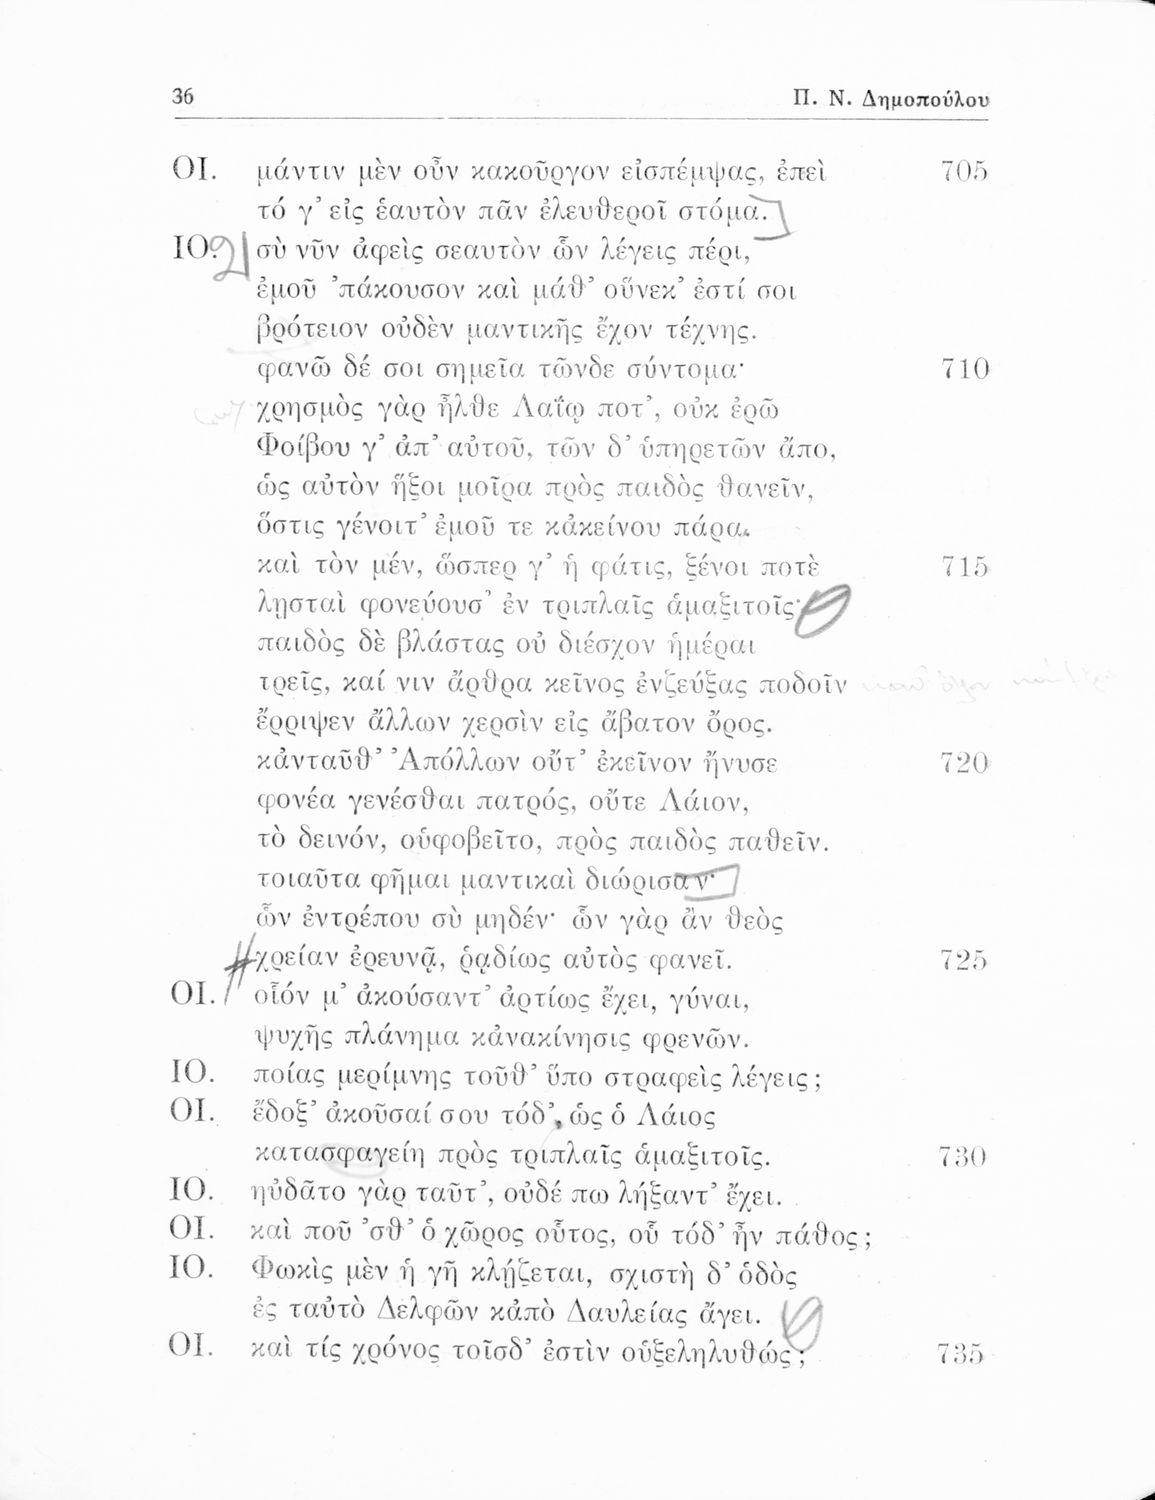 36 Π. Ν. Δημοπούλου
ΟΙ. μάντιν μὲν οὖν κακοῦργον εἰσπέμψας, ἐπεὶ 705
τό γ’ εἰς ἑαυτὸν πᾶν ἐλευθεροῖ στόμα.
ΙΟ. σὺ νῦν ἀφεὶς σεαυτὸν ὧν λέγεις πέρι,
ἐμοῦ ’πάκουσον καὶ μάθ’ οὕνεκ’ ἐστί σοι
βρότειον οὐδὲν μαντικῆς ἔχον τέχνης.
φανῶ δέ σοι σημεῖα τῶνδε σύντομα· 710
χρησμὸς γὰρ ἦλθε Λαΐῳ ποτ’, οὐκ ἐρῶ
Φοίβου γ’ ἀπ’ αὐτοῦ, τῶν δ’ ὑπηρετῶν ἄπο,
ὡς αὐτὸν ἥξοι μοῖρα πρὸς παιδὸς θανεῖν,
ὅστις γένοιτ’ ἐμοῦ τε κἀκείνου πάρα.
καὶ τὸν μέν, ὥσπερ γ’ ἡ φάτις, ξένοι ποτὲ 715
λῃσταὶ φονεύουσ’ ἐν τριπλαῖς ἁμαξιτοῖς·
παιδὸς δὲ βλάστας οὐ διέσχον ἡμέραι
τρεῖς, καί νιν ἄρθρα κεῖνος ἐνζεύξας ποδοῖν
ἔρριψεν ἄλλων χερσὶν εἰς ἄβατον ὄρος.
κἀνταῦθ’ Ἀπόλλων οὔτ’ ἐκεῖνον ἤνυσε 720
φονέα γενέσθαι πατρός, οὔτε Λάιον,
τὸ δεινόν, οὑφοβεῖτο, πρὸς παιδὸς παθεῖν.
τοιαῦτα φῆμαι μαντικαὶ διώρισαν·
ὧν ἐντρέπου σὺ μηδέν· ὧν γὰρ ἂν θεὸς
χρείαν ἐρευνᾷ, ῥᾳδίως αὐτὸς φανεῖ. 725
ΟΙ. οἷόν μ’ ἀκούσαντ’ ἀρτίως ἔχει, γύναι,
ψυχῆς πλάνημα κἀνακίνησις φρενῶν.
ΙΟ. ποίας μερίμνης τοῦθ’ ὕπο στραφεὶς λέγεις;
ΟΙ. ἔδοξ’ ἀκοῦσαί σου τόδ’, ὡς ὁ Λάιος
κατασφαγείη πρὸς τριπλαῖς ἁμαξιτοῖς. 730
ΙΟ. ηὐδᾶτο γὰρ ταῦτ’, οὐδέ πω λήξαντ’ ἔχει.
ΟΙ. καὶ ποῦ ’σθ’ ὁ χῶρος οὗτος, οὗ τόδ’ ἦν πάθος;
ΙΟ. Φωκὶς μὲν ἡ γῆ κλῄζεται, σχιστὴ δ’ ὁδὸς
ἐς ταὐτὸ Δελφῶν κἀπὸ Δαυλείας ἄγει.
ΟΙ. καὶ τίς χρόνος τοῖσδ’ ἐστὶν οὑξεληλυθώς; 735